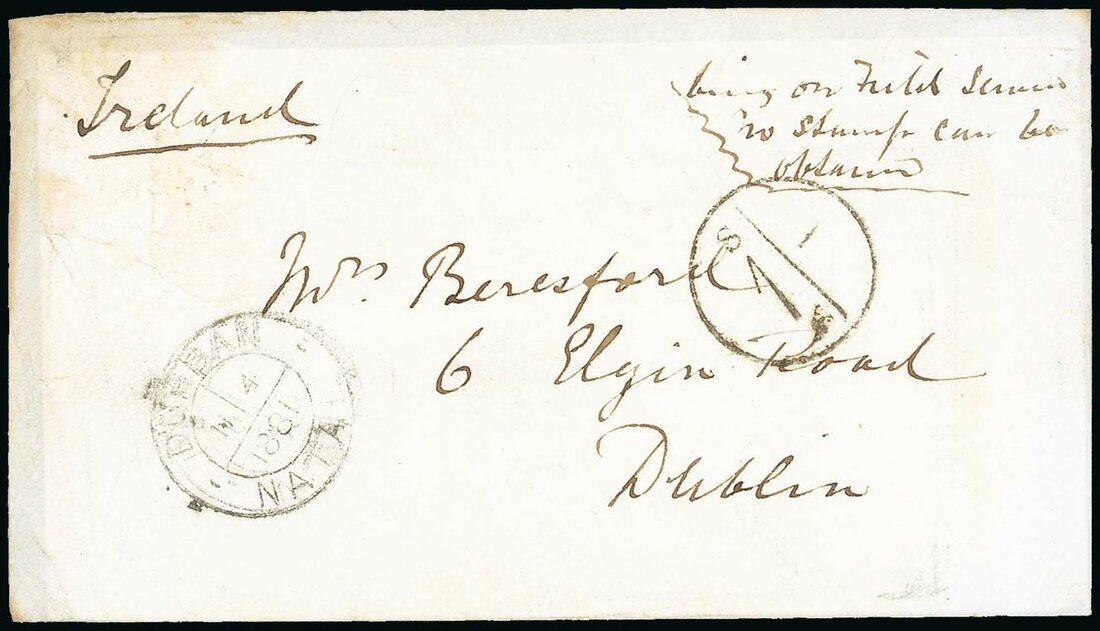 Ireland
being on Field Service
no stamps can be
obtained
Mrs. Beresford
6 Elgin Road
Dublin
DURBAN
4
1881
NATAL